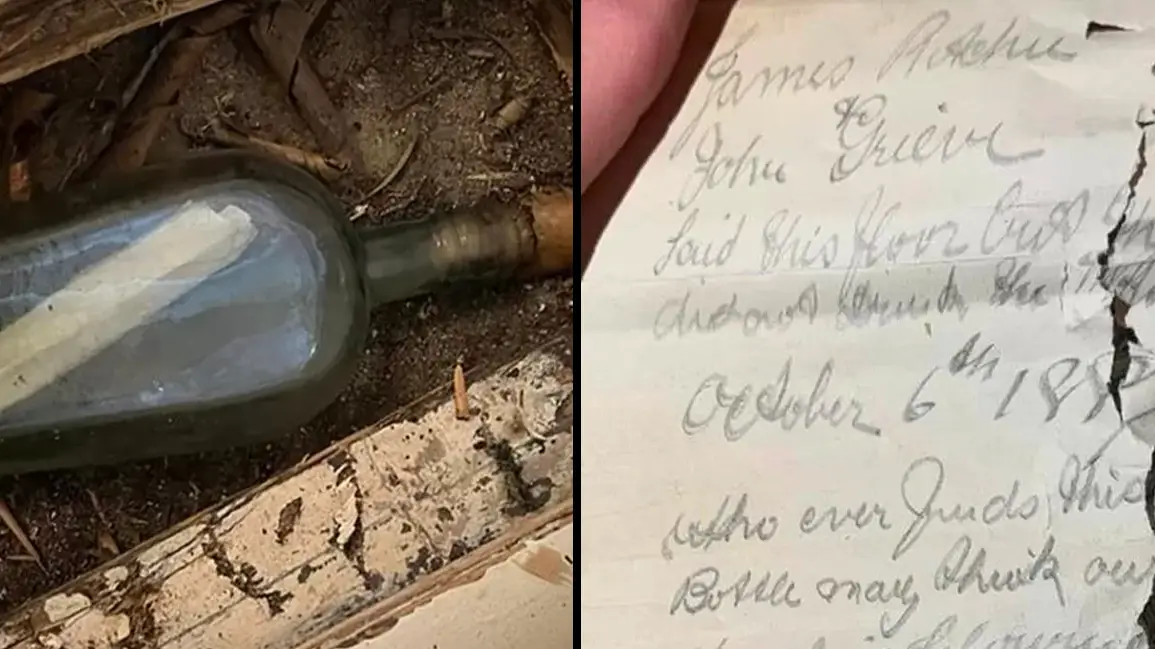 James Ritchie
&
John Grieve
laid this floor but they
did not drink the
October 6th 188
who ever finds this
Bottle may think our